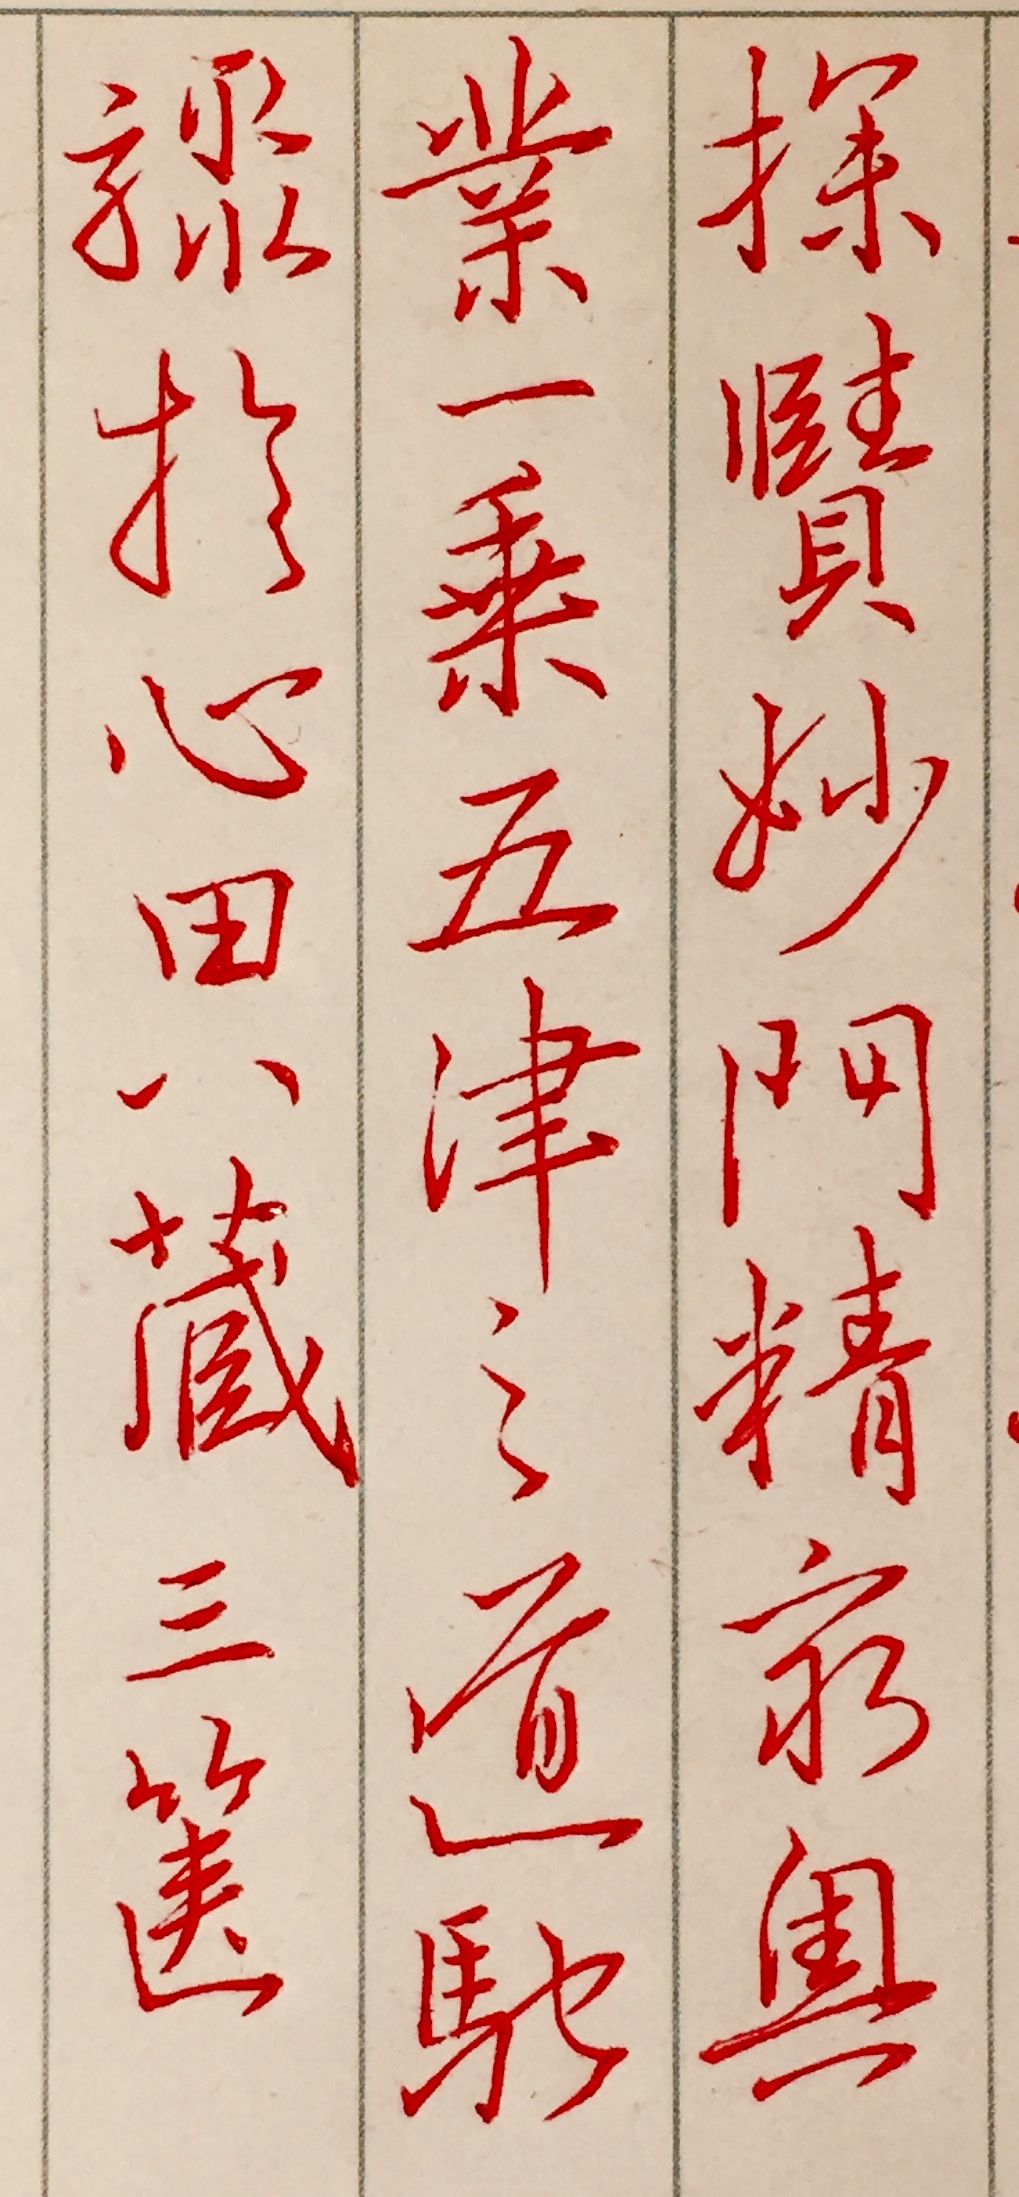 探賾妙門精窮奧
業一乘五津之道馳
驟於心田八藏三篋